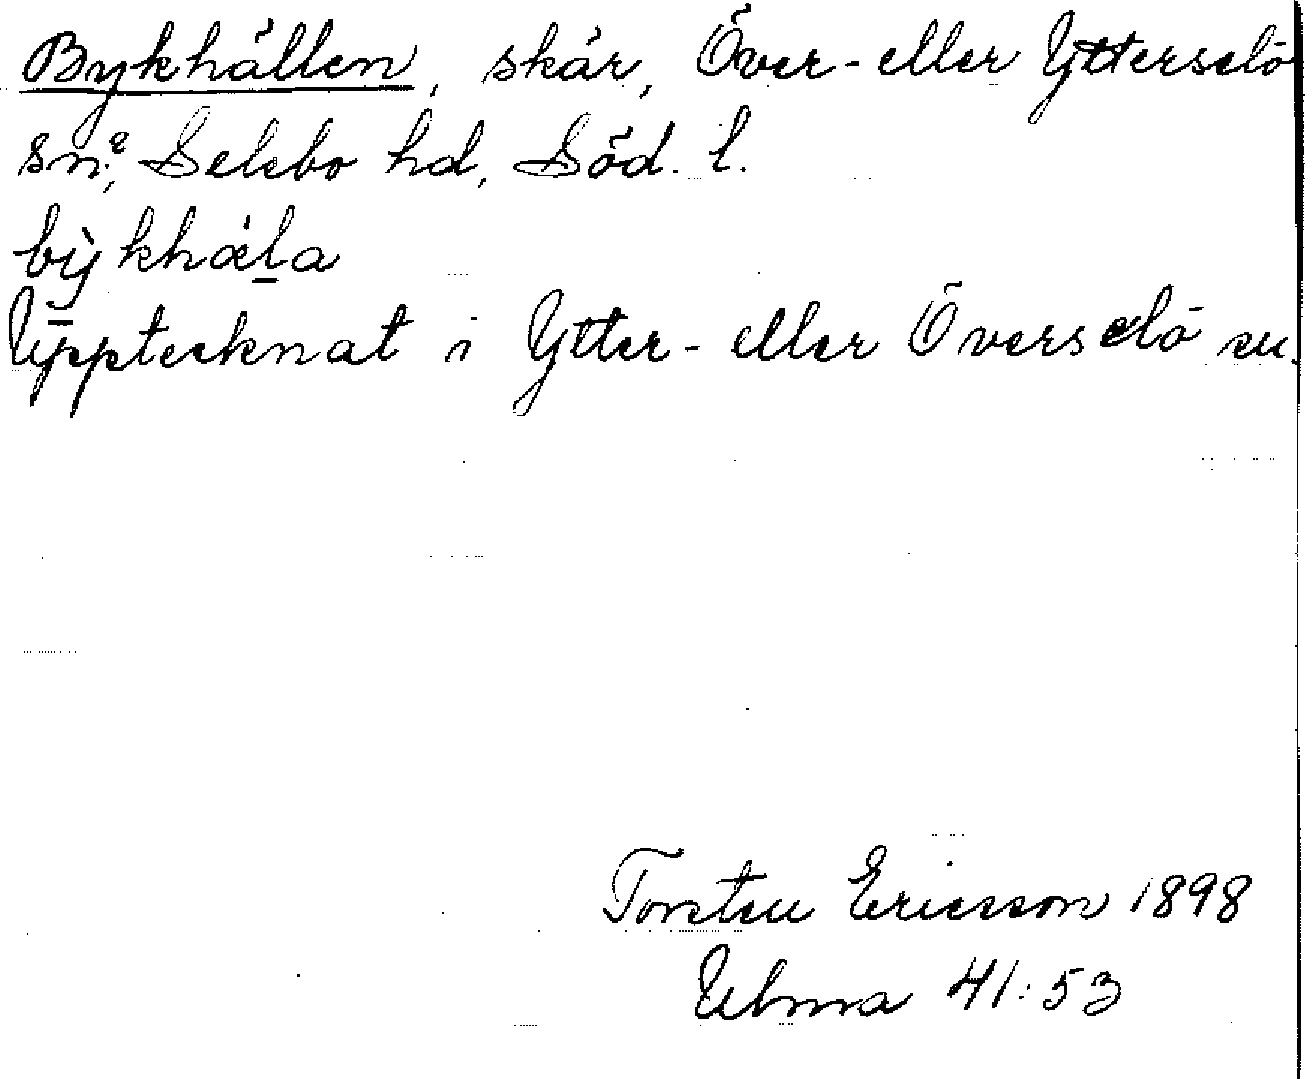 Bykhällen, skär, Över- eller Ytterselö
sn?, Selebo hd, Söd. l.
bỳkhæ̀la
Upptecknat i Ytter- eller Överselö sn.
Torsten Ericsson 1898
Ulma 41:53